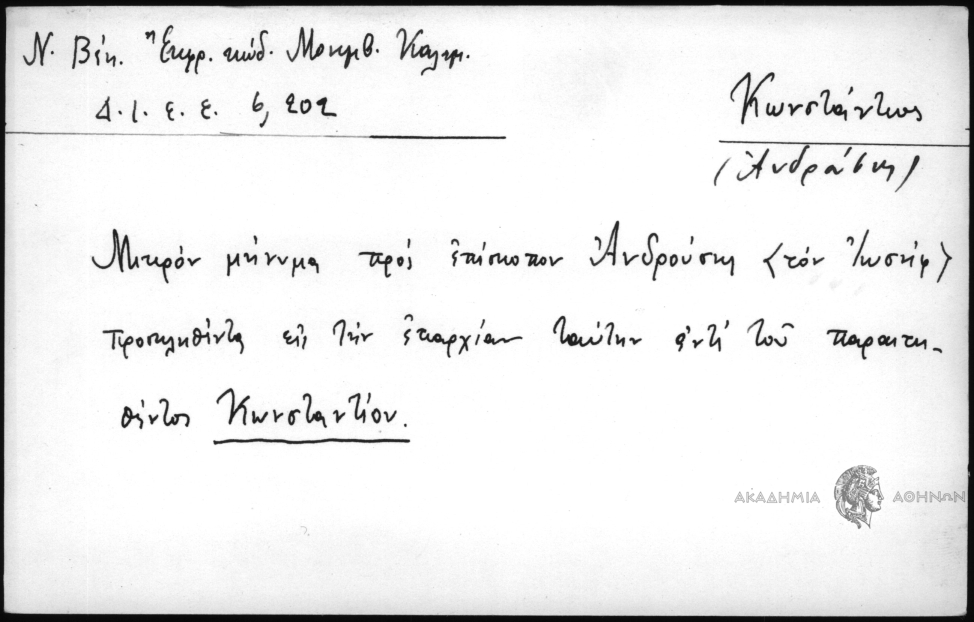 Ν. Βέη. Ἐκφρ. κώδ. Μονεμβ. Καλαμ.
Δ. Ι. Ε. Ε. 6, 202
Κωνστάντιος
(Ἀνδρούσης)
Μικρόν μήνυμα πρός ἐπίσκοπον Ἀνδρούσης <τόν Ἰωσήφ>
προσκληθέντα εἰς τήν ἐπαρχίαν ταύτην ἀντί τοῦ παραιτη-
θέντος Κωνσταντίου.
ΑΚΑΔΗΜΙΑ ΑΘΗΝΩΝ